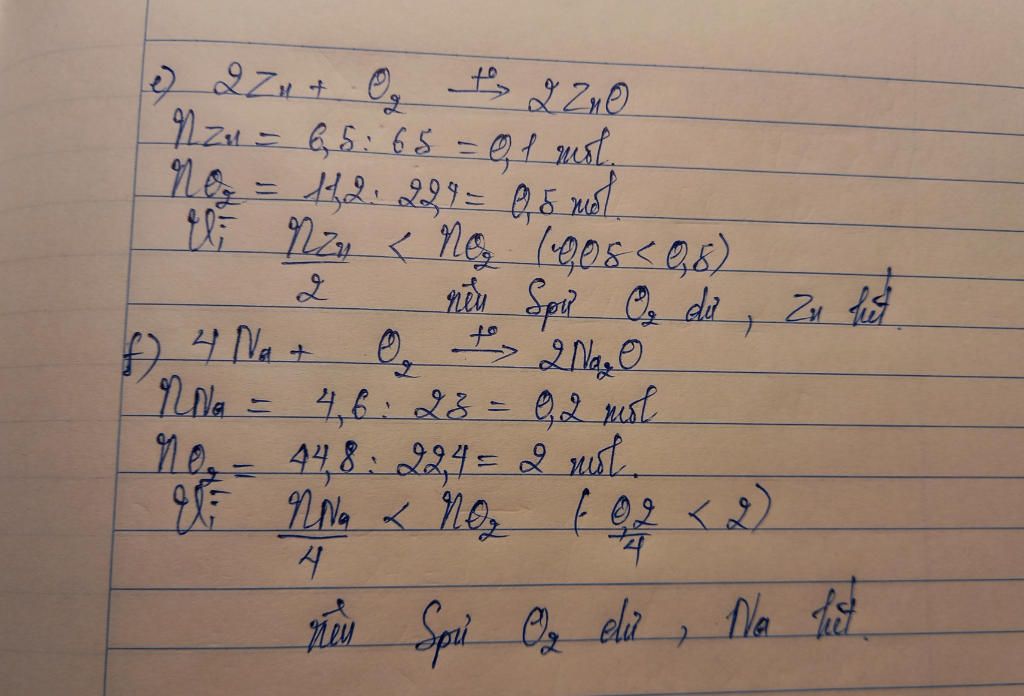 e) 2Zn + O₂ t°→ 2ZnO
nZn = 6,5 : 65 = 0,1 mol.
nO₂ = 11,2 : 22,4 = 0,5 mol.
Vì nZn/2 < nO₂ (0,05 < 0,5)
nên Spứ O₂ dư, Zn hết.
f) 4Na + O₂ t°→ 2Na₂O
nNa = 4,6 : 23 = 0,2 mol
nO₂ = 44,8 : 22,4 = 2 mol.
Vì nNa/4 < nO₂ (0,2/4 < 2)
nên Spứ O₂ dư, Na hết.